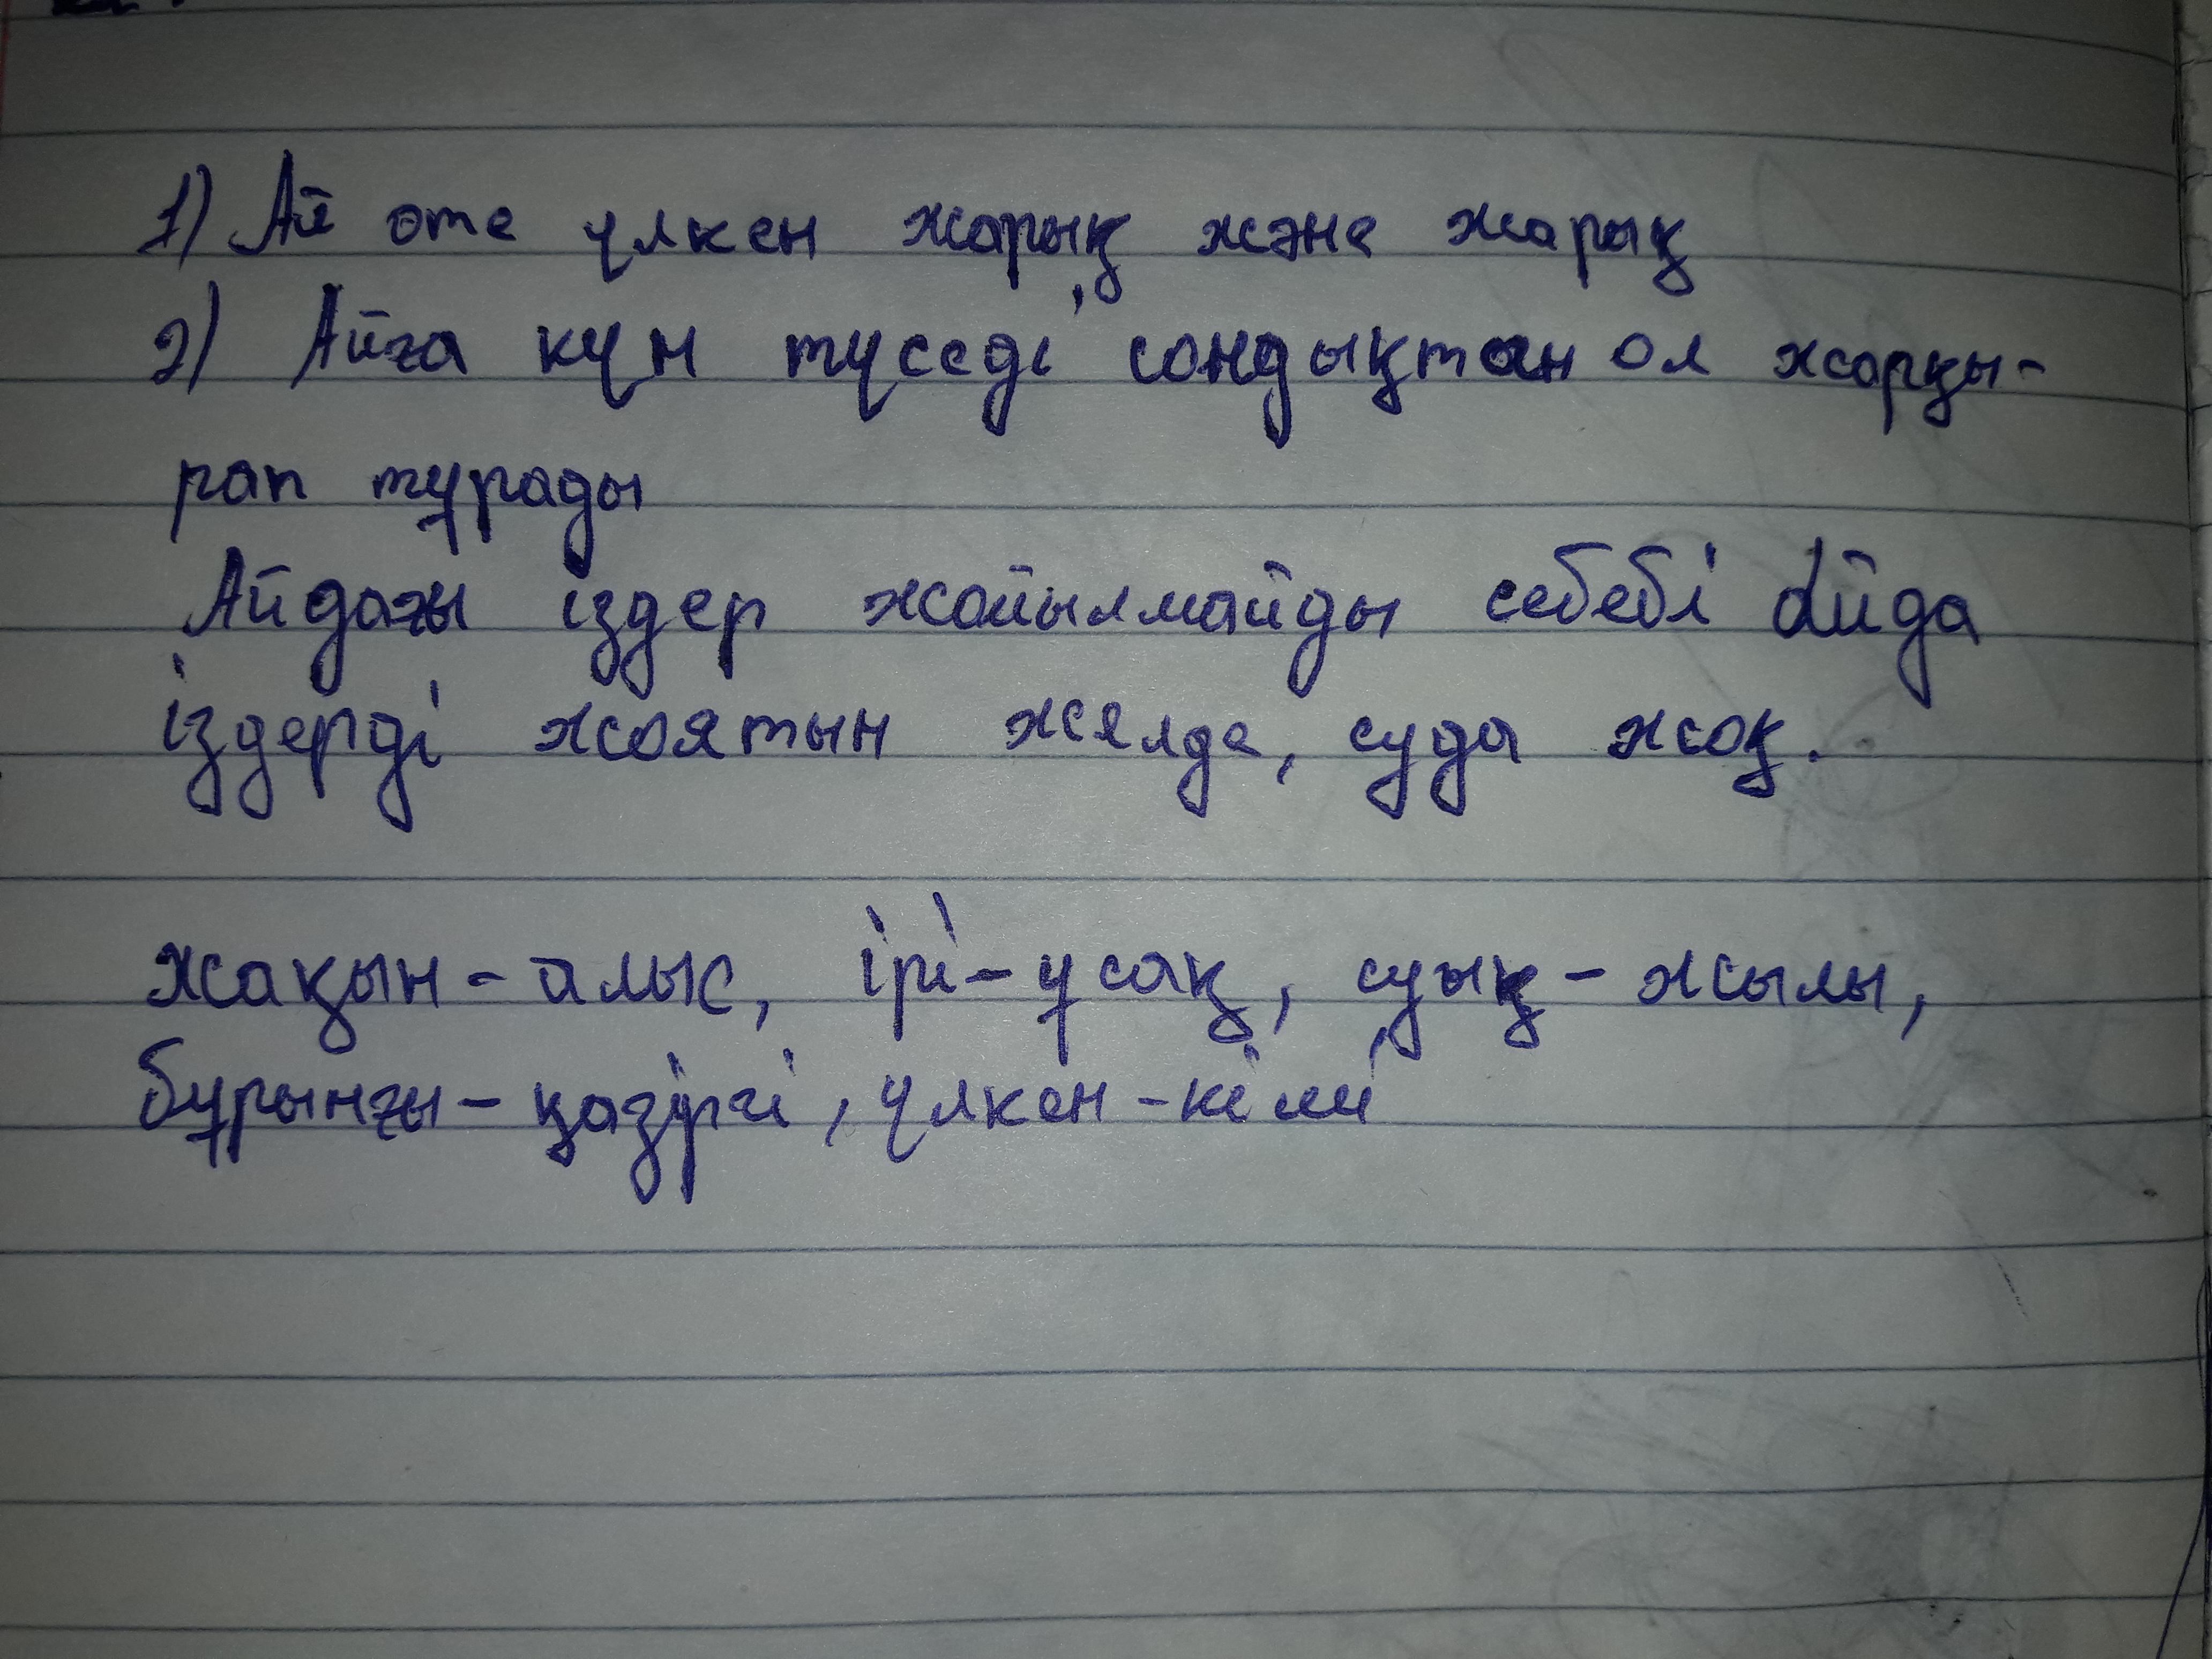 1) Ай өте үлкен жарық және жарық
2) Айға күн түседі сондықтан ол жарқы-
рап тұрады
Айдағы іздер жойылмайды себебі Айда
іздерді жоятын желде, суда жоқ.
жақын - алыс, ірі - ұсақ, суық - жылы,
бұрынғы - қазіргі, үлкен - кіші